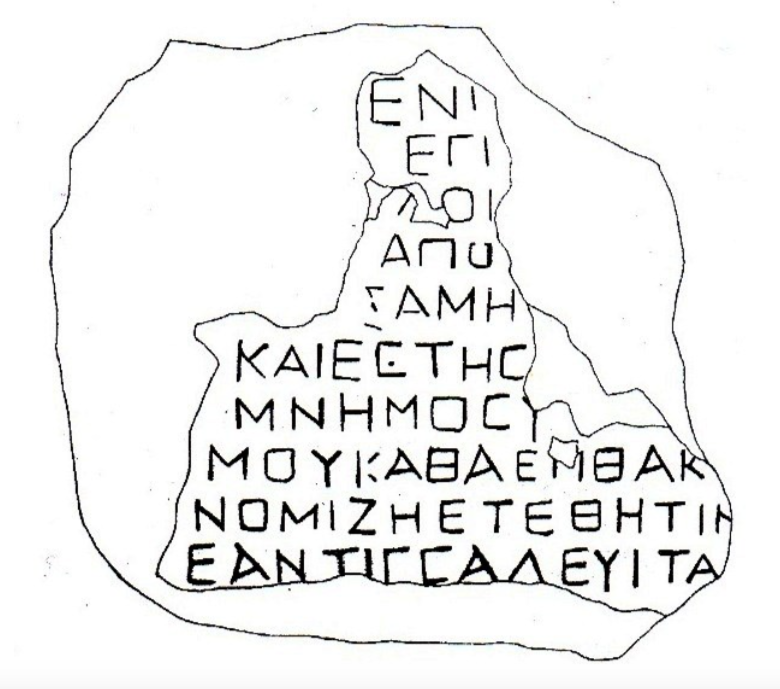 ΕΝΙ
ΕΓΙ
ΛΟΙ
ΑΠΟ
ΣΑΜΗ
ΚΑΙΕΣΤΗC
ΜΝΗΜΟCΥ
ΜΟΥΚΑΘΑΕΜΘΑΚ
ΝΟΜΙΖΗΕΤΕΘΗΤΙΗ
ΕΑΝΤΙΓCΑΛΕΥΙΤΑ